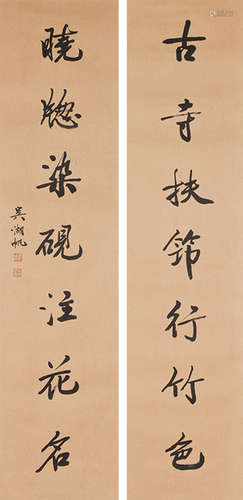 古寺扶筇行竹色
曉窓染硯注花名
吳湖帆